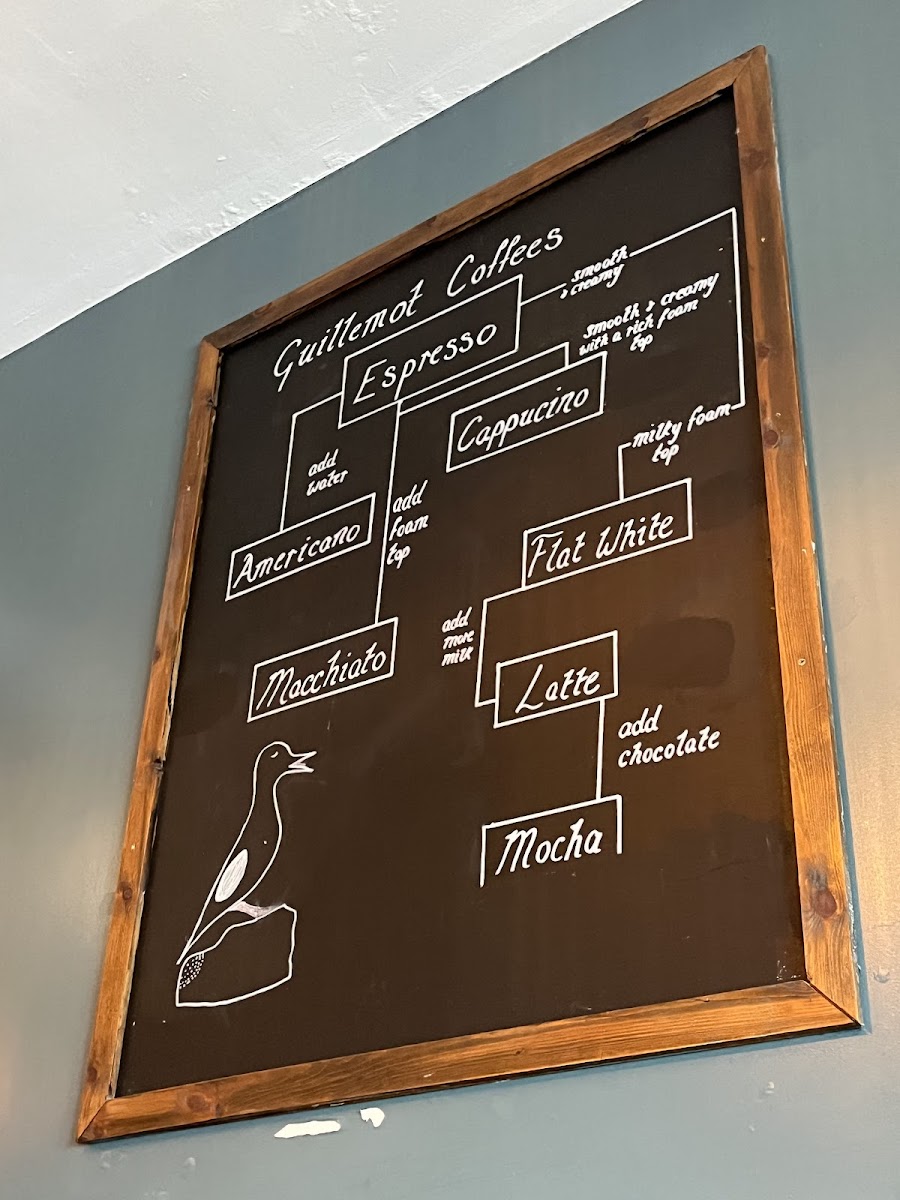 Guillemot Coffees
Espresso
smooth
& creamy
smooth & creamy
with a rich foam
top
Cappucino
milky foam
top
add
water
add
foam
top
Americano
Flat White
Macchiato
add
more
milk
Latte
add
chocolate
Mocha